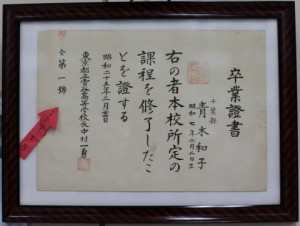 卒業證書
千葉縣
青木和子
昭和七年二月二日生
右の者本校所定の
課程を修了したこ
とを證する
昭和二十五年三月
東京都立
高等學校長中村一勇
第一號